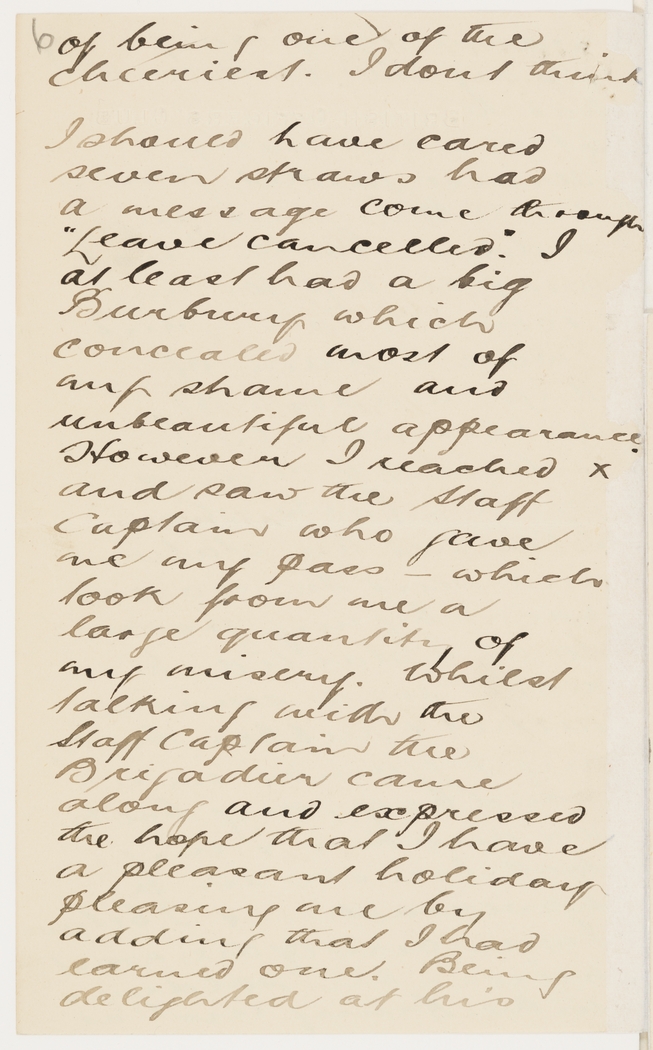 6
of being one of the
cheeriest. I dont think
I should have cared
seven straws had
a message come through
"Leave cancelled". I
at least had a big
Burbury which
concealed most of
my shame and
unbeautiful appearance.
However I reached x
and saw the Staff
Captain who gave
me my pass – which
took from me a
large quantity of
my misery. Whilst
talking with the
Staff Captain the
Brigadier came
along and expressed
the hope that I have
a pleasant holiday
pleasing me by
adding that I had
earned one. Being
delighted at his